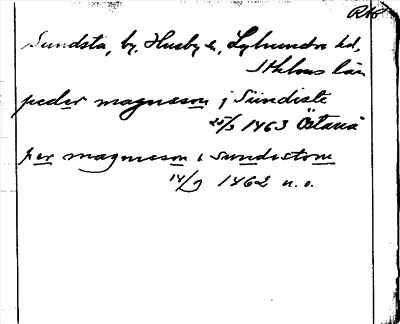 RA8
Sundsta, by, Husby s., Lyhundra hd,
Sthlms län
peder magnesson j Sundiste
25/3 1463 Östanå
per magnesson i Sundestom
14/9 1462 n.o.